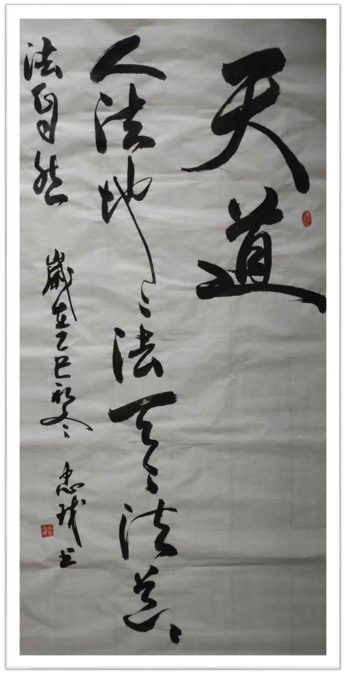 天道
人法地〻法天〻法道〻
法自然 歲在乙巳初冬 忠 书